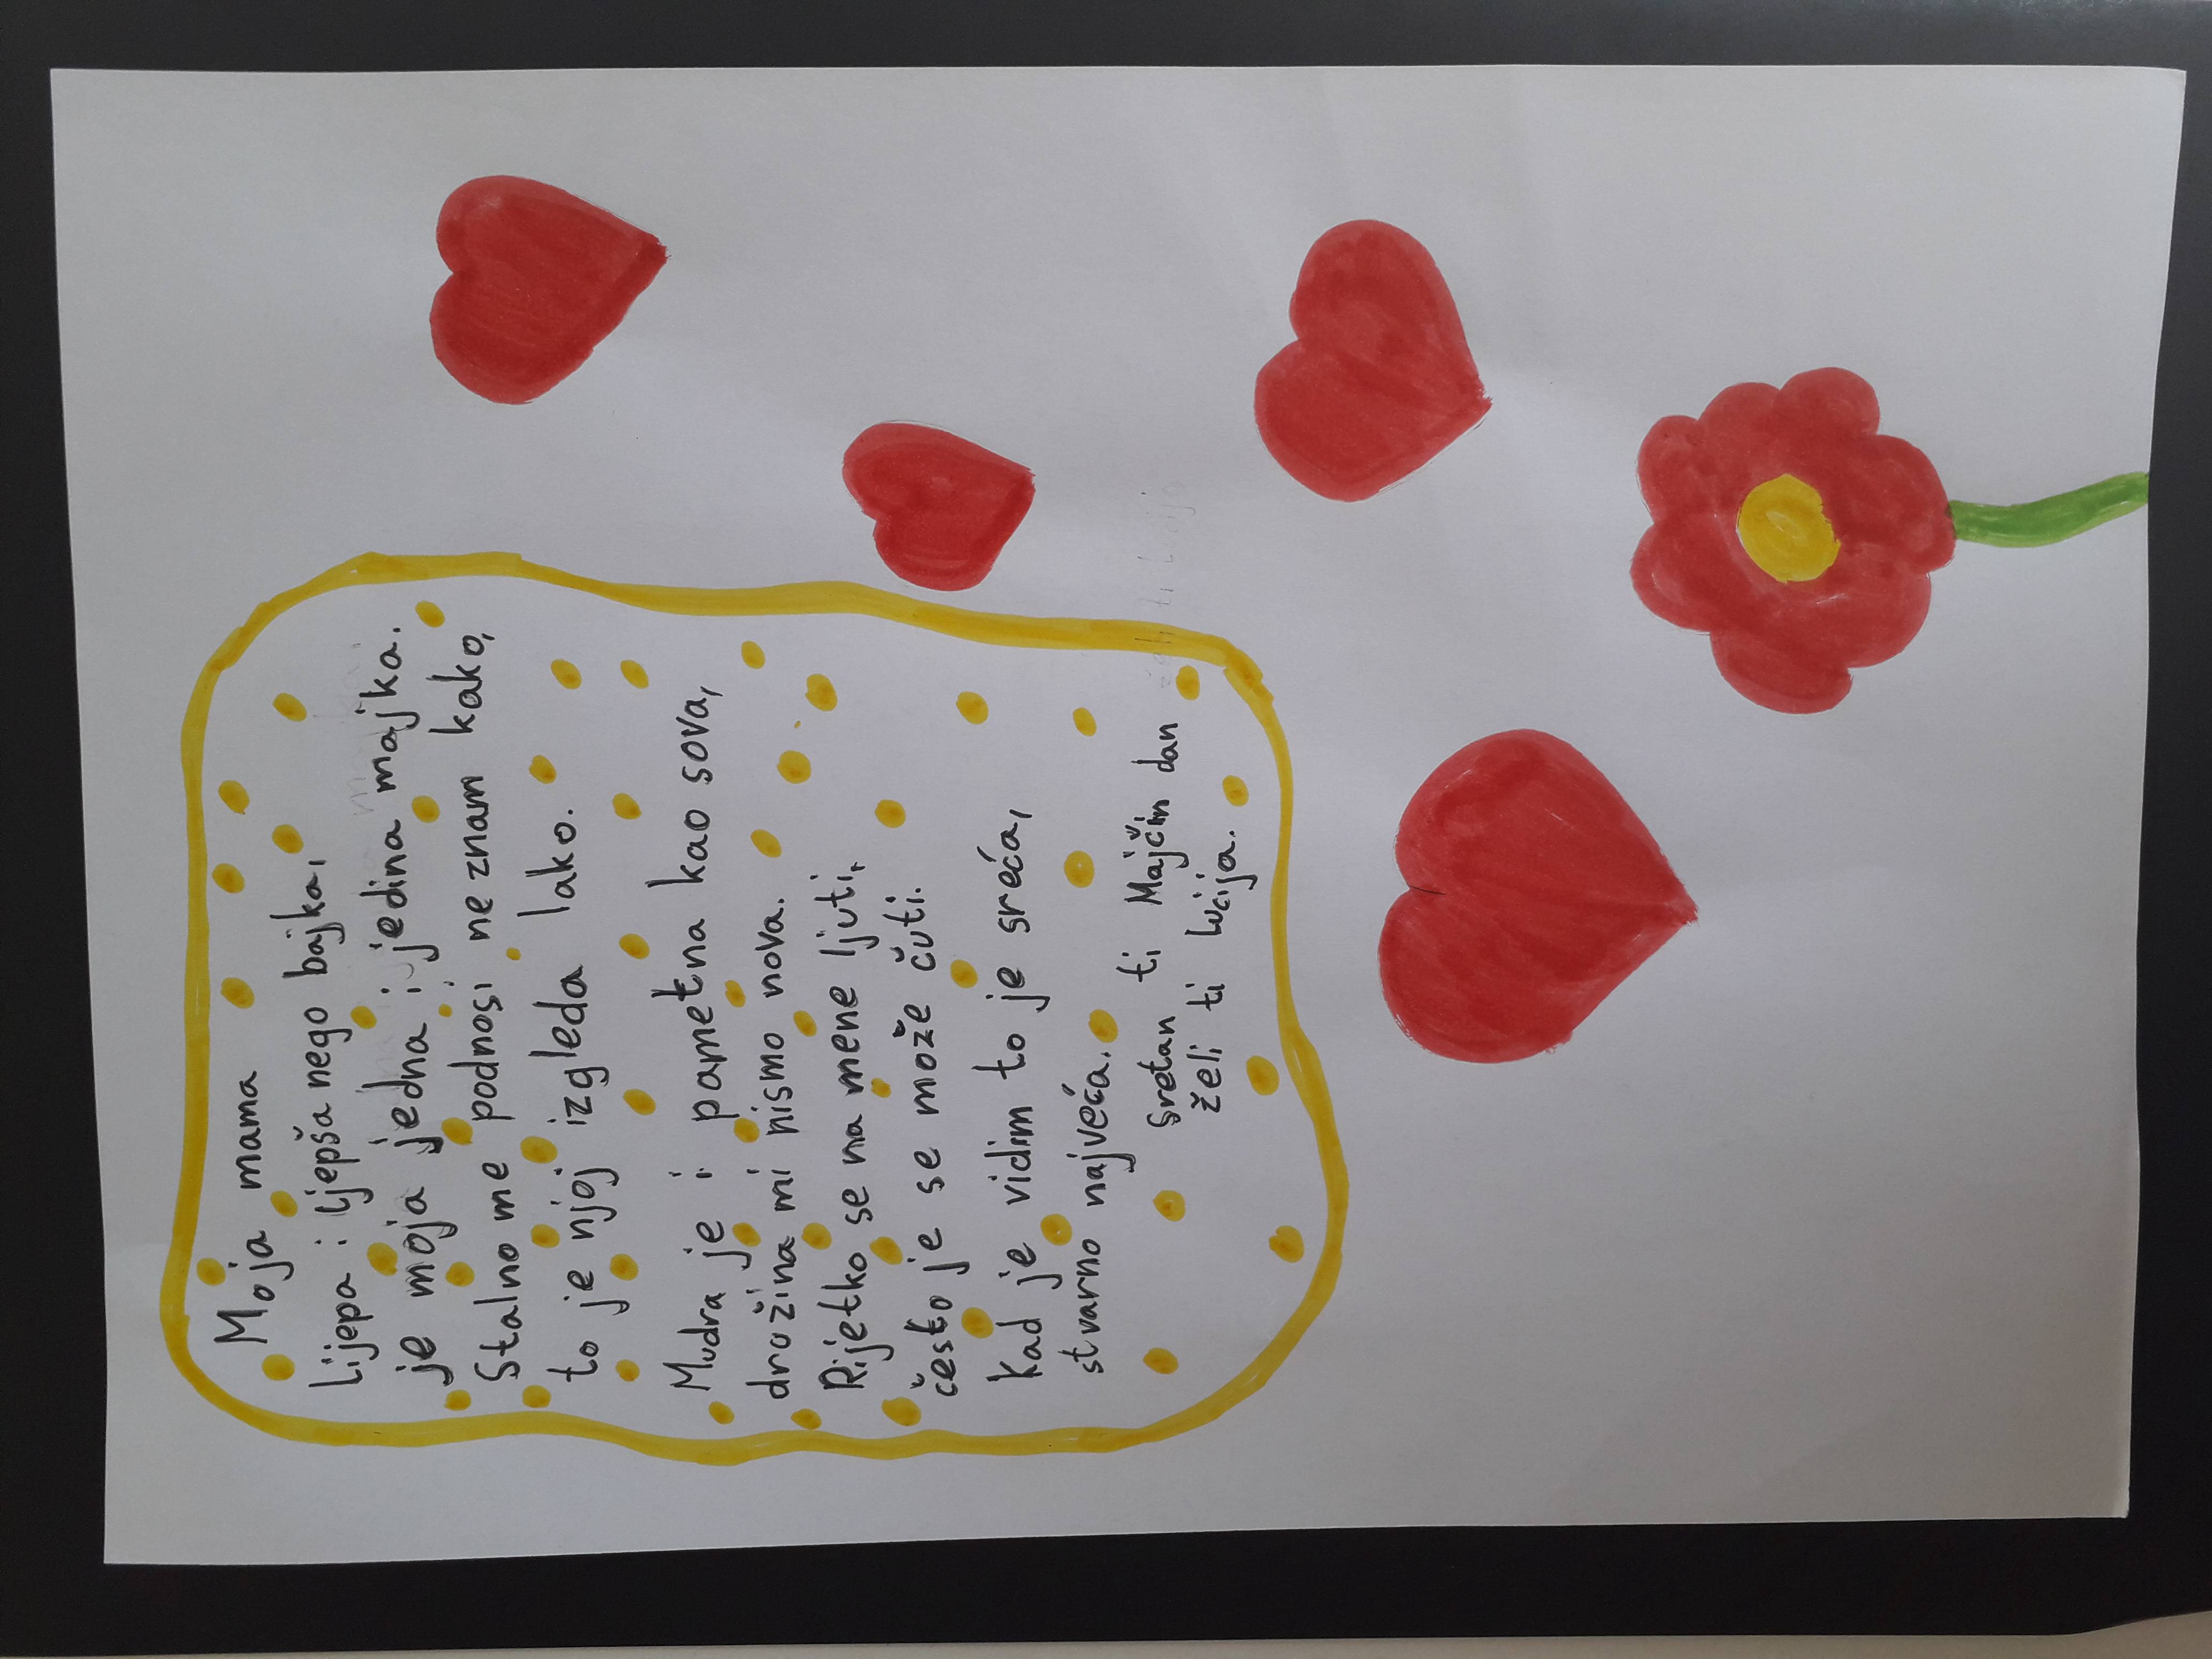 Moja mama
Lijepa i ljepša nego bajka,
je moja jedna i jedina majka.
Stalno me podnosi ne znam kako,
to je njoj izgleda lako.
Mudra je i pametna kao sova,
družina mi nismo nova.
Rijetko se na mene ljuti,
često je se može čuti.
Kad je vidim to je sreća,
stvarno najveća.
Sretan ti Majčin dan
želi ti Lucija.